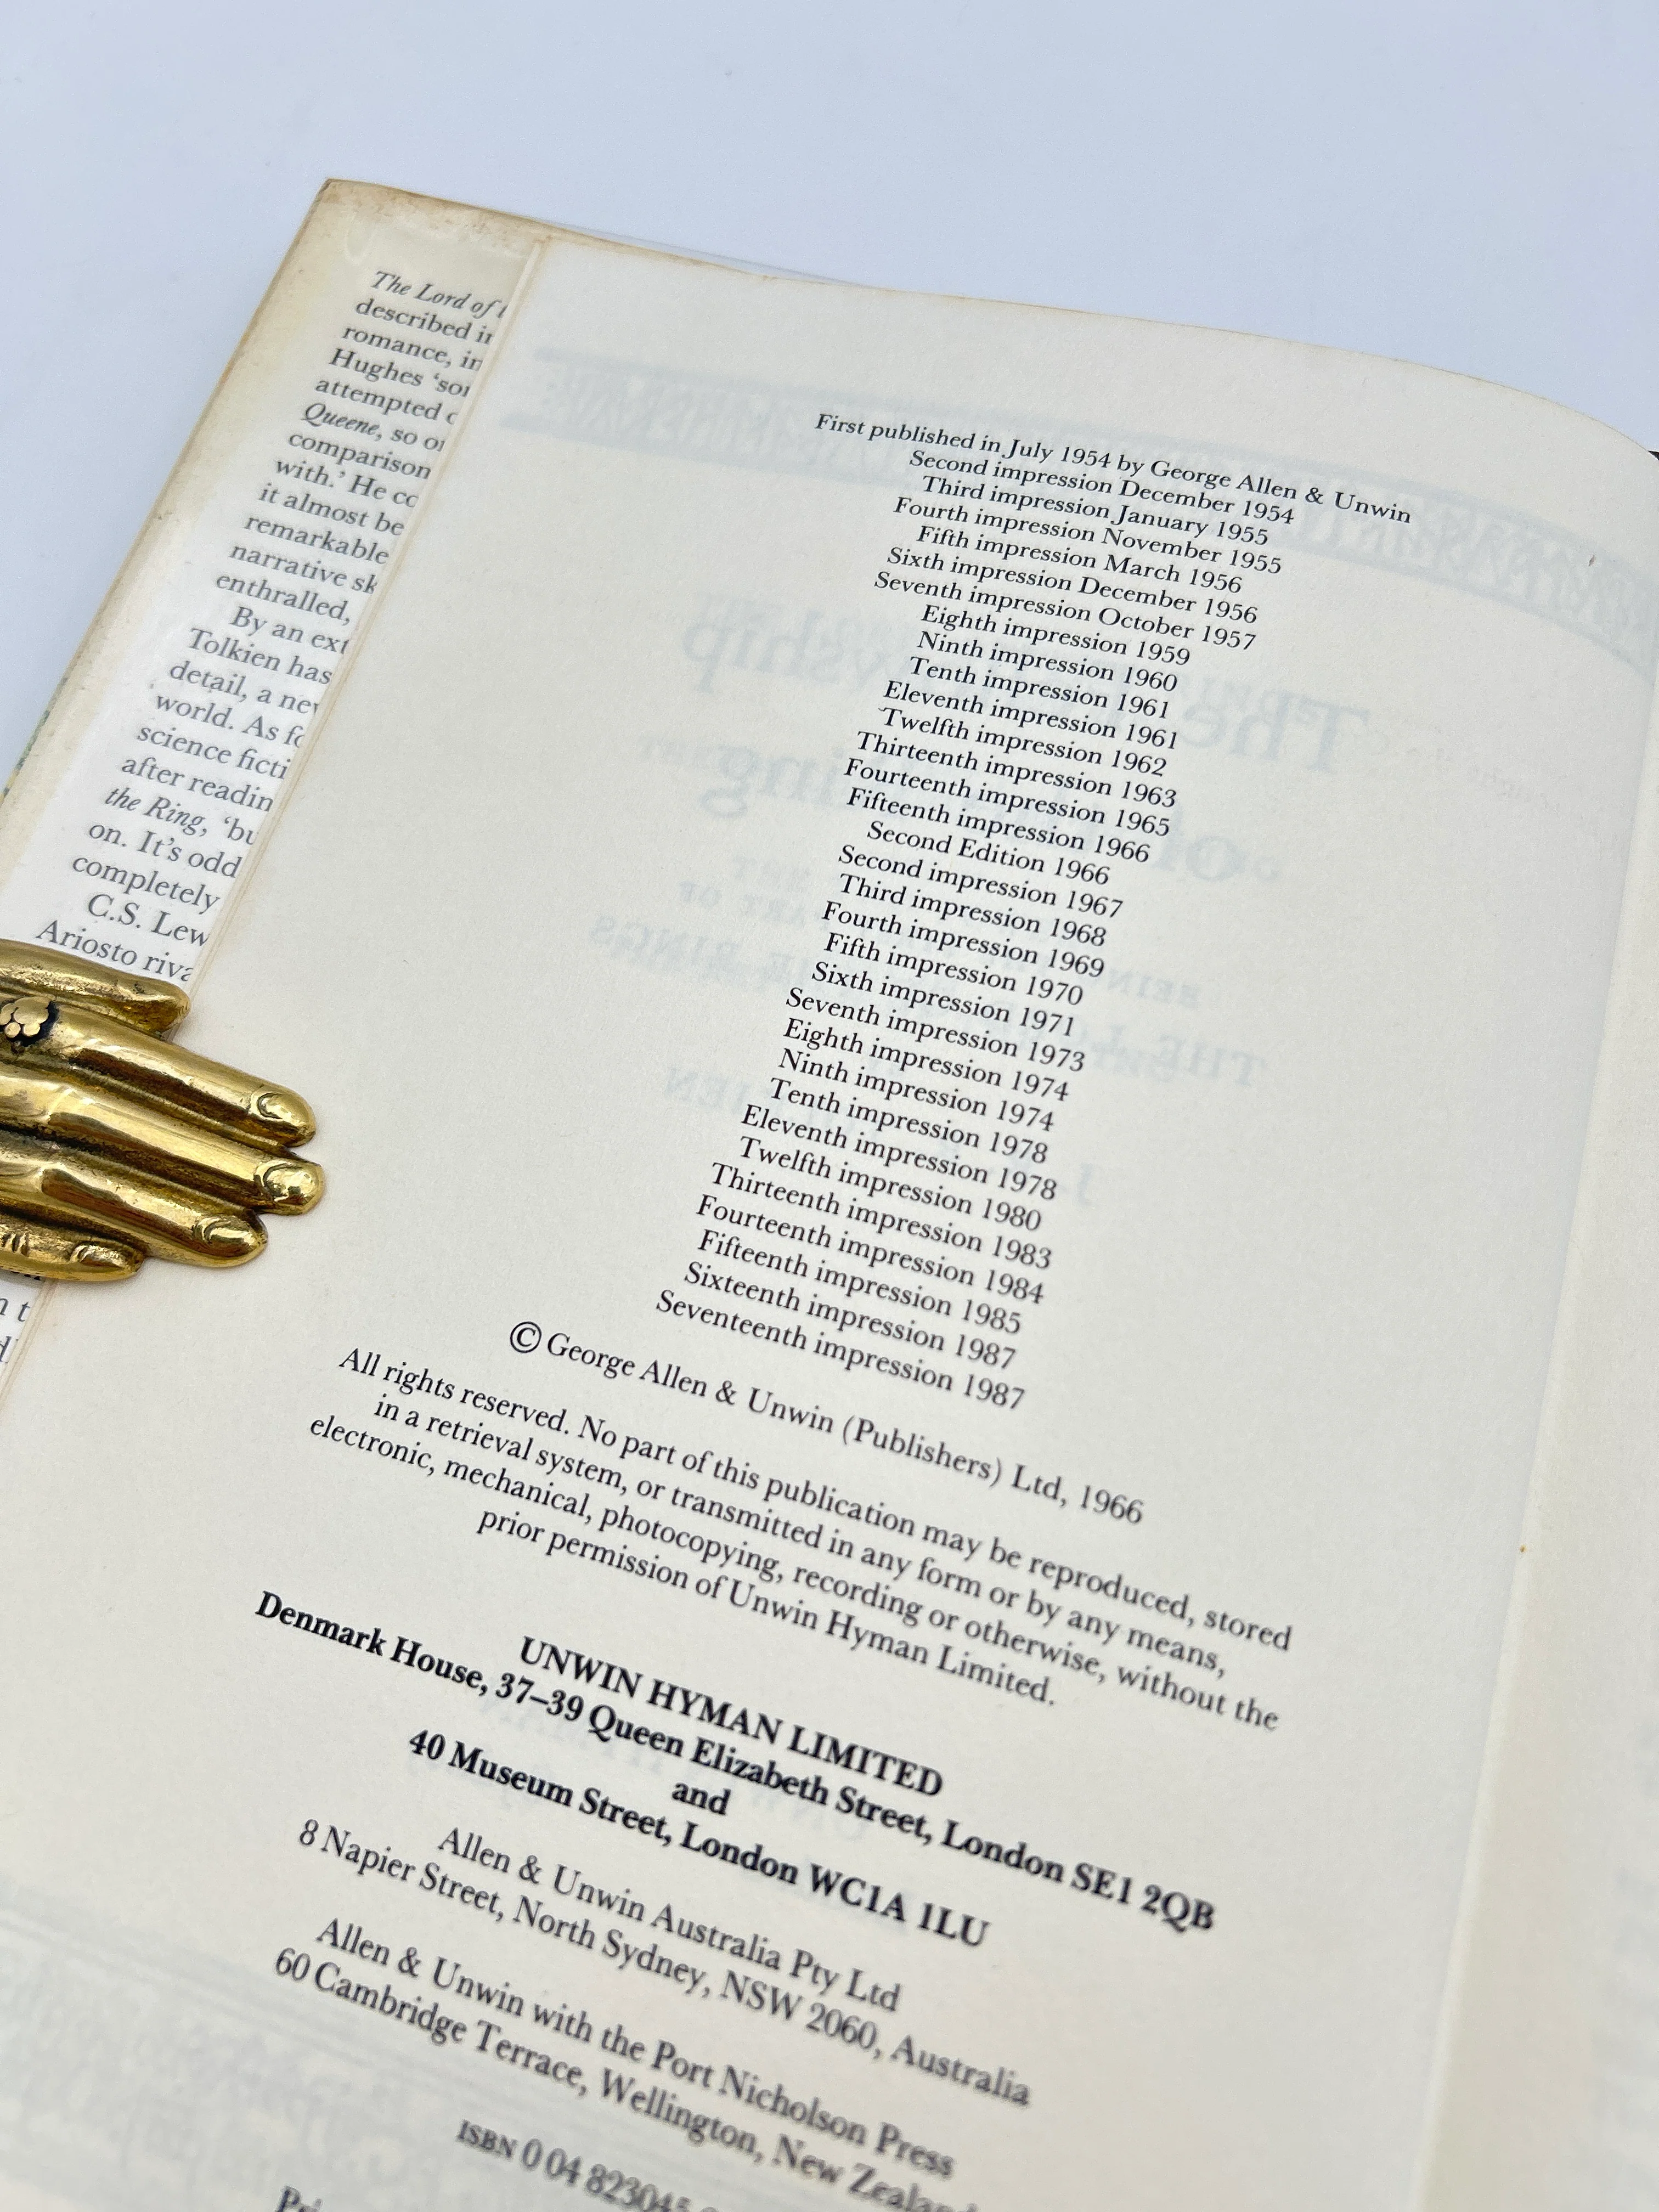 The Lord of
described in
romance, in
Hughes ‘so
attempted
Queene, so
comparison
with.’ He
it almost be
remarkable
narrative
enthralled,
By an
Tolkien has
detail, a
world. As
science
after
the Ring, ‘
on. It’s odd
completely
C.S.
Ariosto
First published in July 1954 by George Allen & Unwin
Second impression December 1954
Third impression January 1955
Fourth impression November 1955
Fifth impression March 1956
Sixth impression December 1956
Seventh impression October 1957
Eighth impression 1959
Ninth impression 1960
Tenth impression 1961
Eleventh impression 1961
Twelfth impression 1962
Thirteenth impression 1963
Fourteenth impression 1965
Fifteenth impression 1966
Second Edition 1966
Second impression 1967
Third impression 1968
Fourth impression 1969
Fifth impression 1970
Sixth impression 1971
Seventh impression 1973
Eighth impression 1974
Ninth impression 1974
Tenth impression 1978
Eleventh impression 1978
Twelfth impression 1980
Thirteenth impression 1983
Fourteenth impression 1984
Fifteenth impression 1985
Sixteenth impression 1987
Seventeenth impression 1987
© George Allen & Unwin (Publishers) Ltd, 1966
All rights reserved. No part of this publication may be reproduced, stored
in a retrieval system, or transmitted in any form or by any means,
electronic, mechanical, photocopying, recording or otherwise, without the
prior permission of Unwin Hyman Limited.
UNWIN HYMAN LIMITED
Denmark House, 37–39 Queen Elizabeth Street, London SE1 2QB
and
40 Museum Street, London WC1A 1LU
Allen & Unwin Australia Pty Ltd
8 Napier Street, North Sydney, NSW 2060, Australia
Allen & Unwin with the Port Nicholson Press
60 Cambridge Terrace, Wellington, New
ISBN 0 04 823045